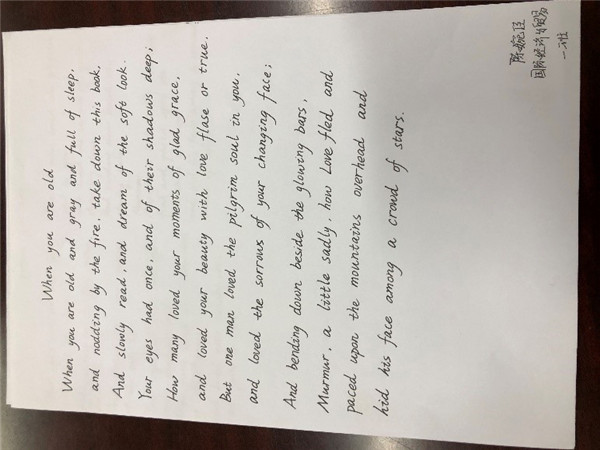 When you are old
When you are old and gray and full of sleep,
and nodding by the fire, take down this book,
And slowly read, and dream of the soft look.
Your eyes had once, and of their shadows deep;
How many loved your moments of glad grace,
and loved your beauty with love flase or true.
But one man loved the pilgrim soul in you,
and loved the sorrows of your changing face;
And bending down beside the glowing bars,
Murmur, a little sadly, how Love fled and
paced upon the mountains overhead and
hid his face among a crowd of stars.
陈婉臣
国际经济与贸易